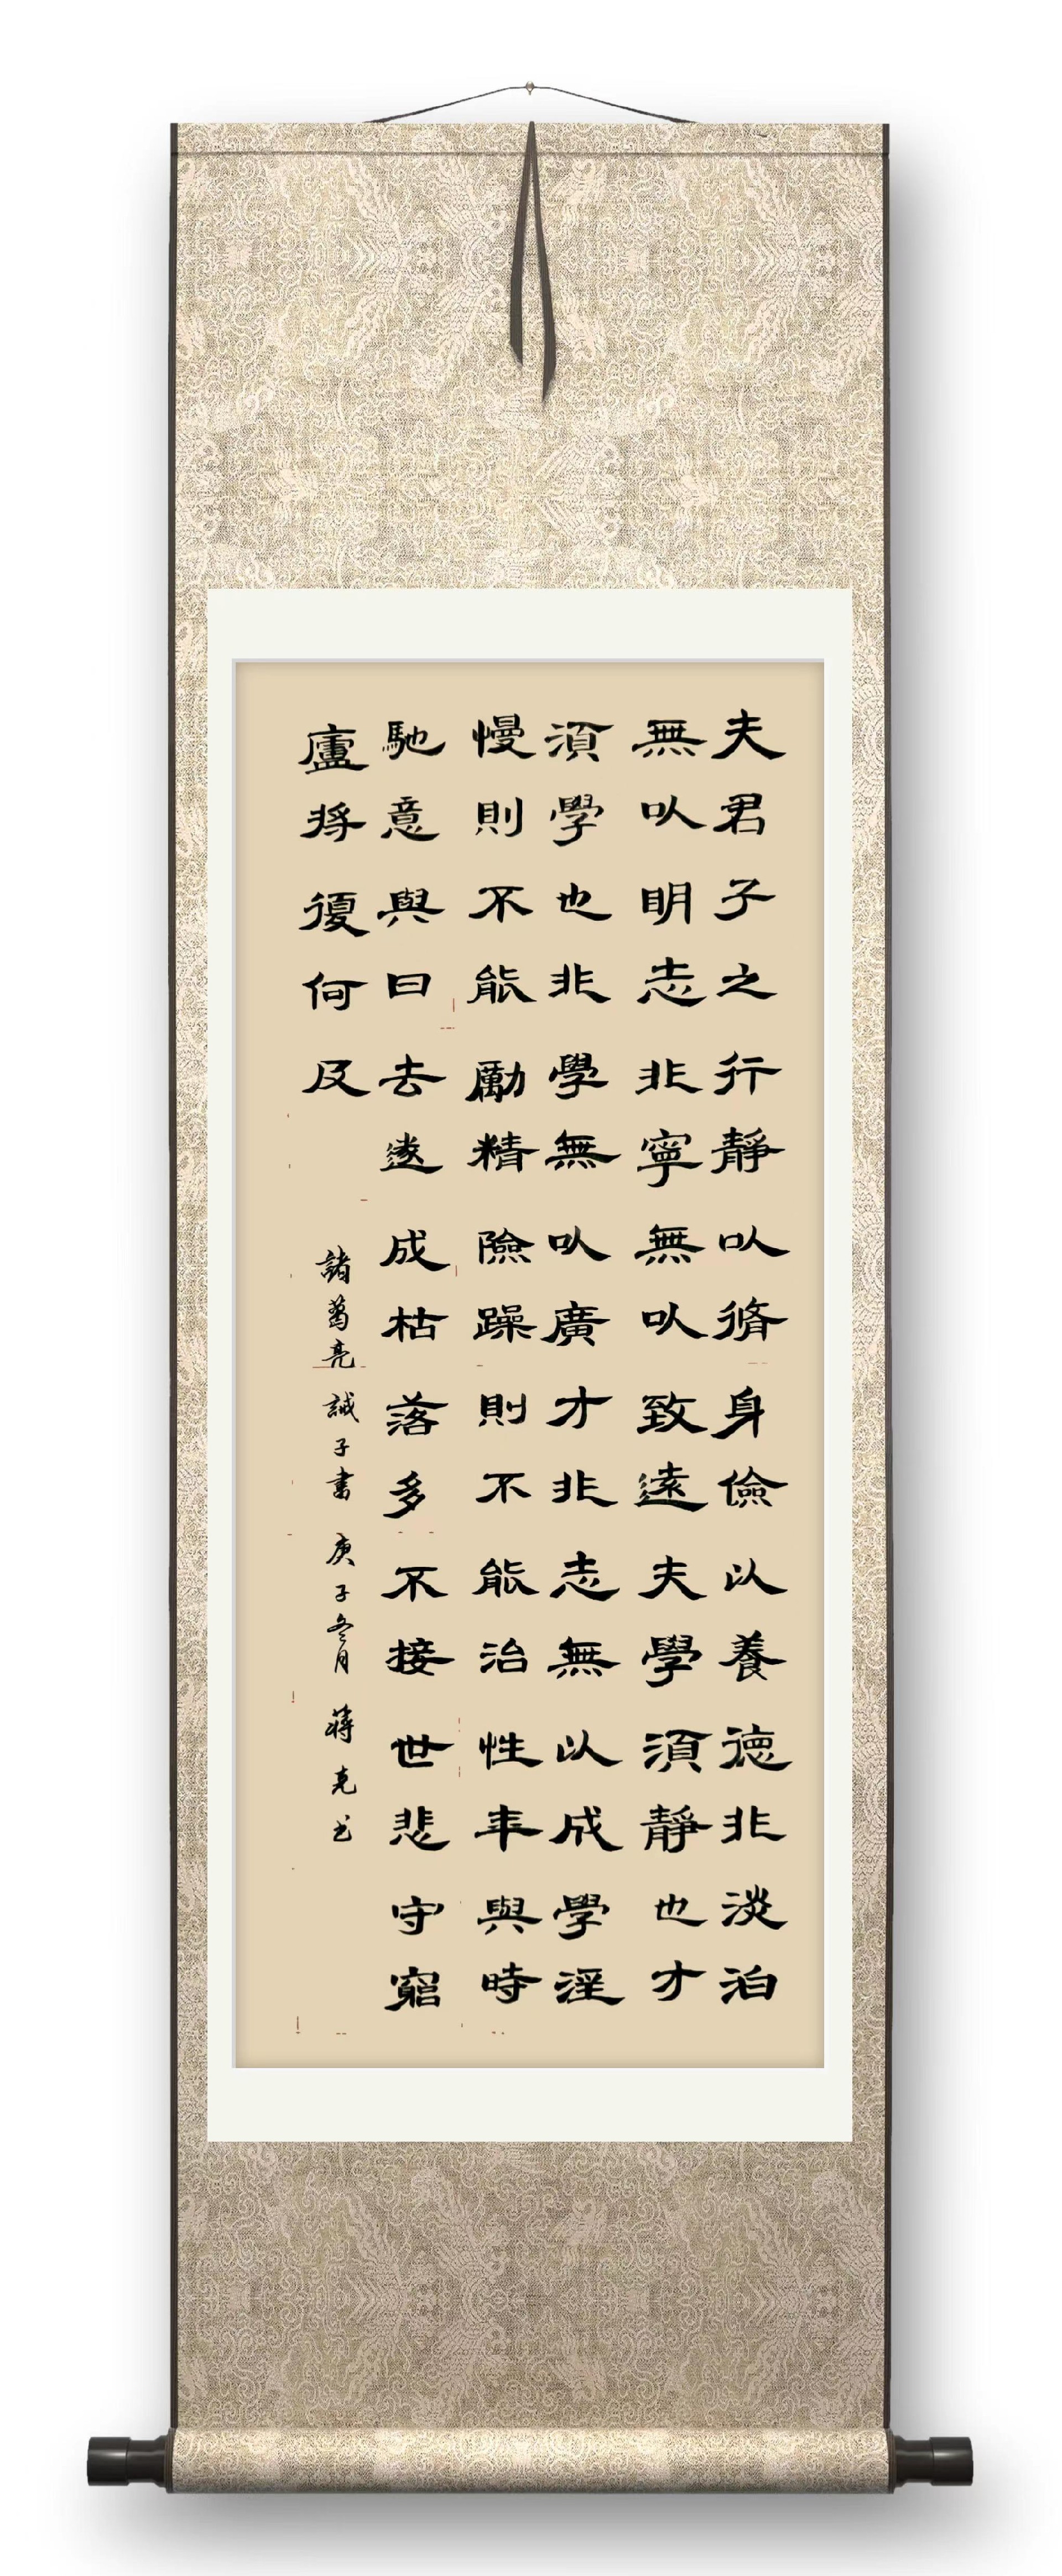 夫君子之行靜以脩身儉以養德非淡泊
無以明志非寧無以致遠夫學須靜也才
須學也非學無以廣才非志無以成學淫
慢則不能勵精險躁則不能治性年與時
馳意與日去遂成枯落多不接世悲守窮
廬将復何及
諸葛亮誡子書 庚子冬月 蔣克书